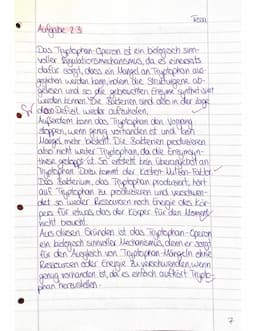 Aufgabe 2.3)
Das Tryptophan-Operon ist ein biologisch sinn-
voller Regulationsmechanismus, da es einerseits
dafür sorgt, dass ein Mangel an Tryptophan aus-
geglichen werden kann, indem die Strukturgene ab-
gelesen und so die gebrauchten Enzyme synthetisiert
werden können. Die Bakterien sind also in der Lage
das Defizit wieder aufzuholen.
Außerdem kann das Tryptophan den Vorgang
stoppen, wenn genug vorhanden ist und kein
Mangel mehr besteht. Die Bakterien produzieren
also nicht weiter Tryptophan, da die Enzymsyn-
these gestoppt ist. So entsteht kein Überangebot an
Tryptophan. Dazu kommt der Kosten-Nutzen-Faktor.
Das Bakterium, das Tryptophan produziert, hört
auf Tryptophan zu produzieren und verschwen-
det so weder Ressourcen noch Energie des Kör-
pers für etwas, das der Körper für den Moment
nicht braucht.
Aus diesen Gründen ist das Tryptophan-Operon
ein biologisch sinnvoller Mechanismus, denn er sorgt
für den Ausgleich von Tryptophan-Mängeln ohne
Ressourcen oder Energie zu verschwenden, wenn
genug vorhanden ist, da es einfach aufhört Trypto-
phan herzustellen.
7